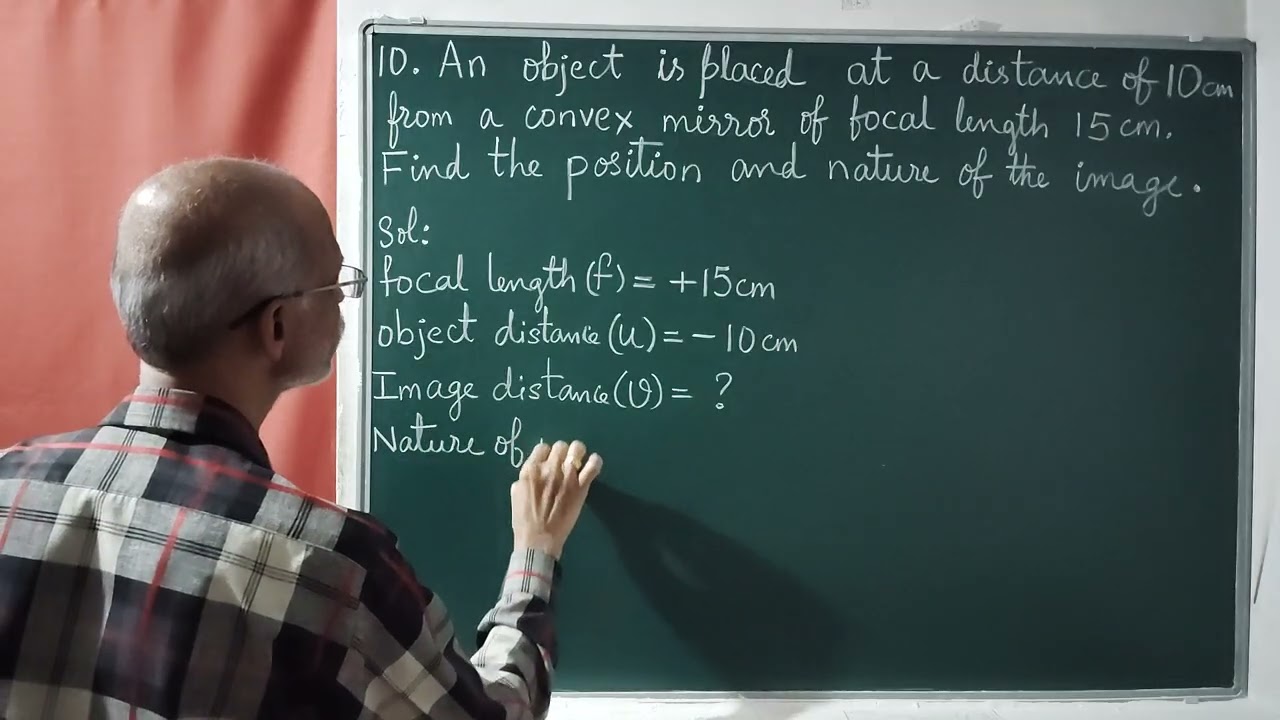 10. An object is placed at a distance of 10cm
from a convex mirror of focal length 15cm.
Find the position and nature of the image.
Sol:
focal length (f) = +15cm
object distance (u) = - 10cm
Image distance (v) = ?
Nature of